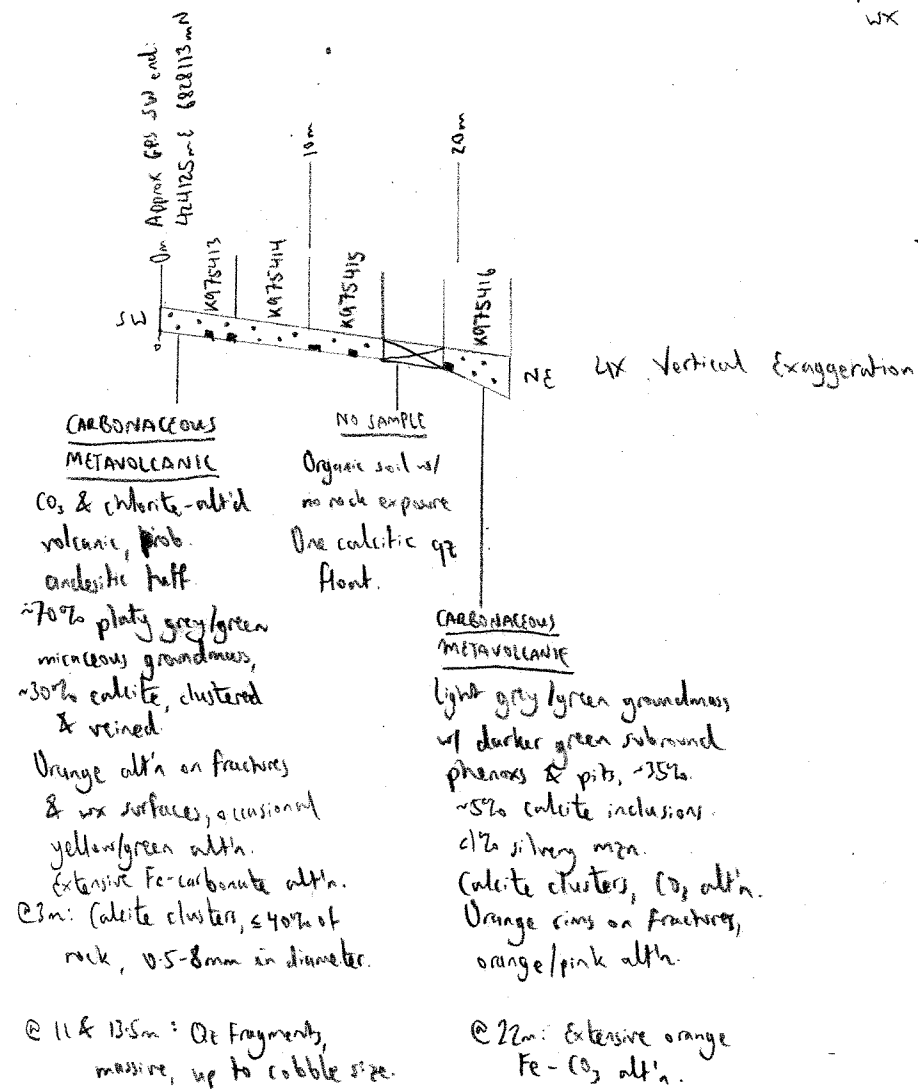 wx
0m Approx GPS SW end:
424125mE 6828113mN
10m
20m
K975413
K975414
K975415
K975416
SW
NE 4X Vertical Exaggeration
CARBONACEOUS
METAVOLCANIC
CO3 & chlorite-alt'd
volcanic, prob.
andesitic tuff.
~70% platy grey/green
micaceous groundmass,
~30% calcite, clustered
& veined.
Orange alt'n on fractures
& wx surfaces, occasional
yellow/green alt'n.
Extensive Fe-carbonate alt'n.
@3m: Calcite clusters, ≤40% of
rock, 0.5-8mm in diameter.
@ 11 & 13.5m: Qz fragments,
massive, up to cobble size.
NO SAMPLE
Organic soil w/
no rock exposure
One calcitic qz
float.
CARBONACEOUS
METAVOLCANIC
Light grey/green groundmass
w/ darker green subround
phenoxs & pits, ~35%.
~5% calcite inclusions.
<1% silvery mzn.
Calcite clusters, CO3 alt'n.
Orange rims on fractures,
orange/pink alt'n.
@ 22m: Extensive orange
Fe-CO3 alt'n.